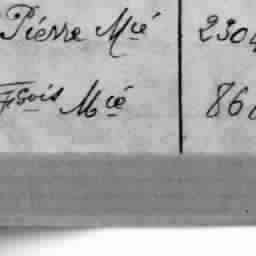 Pierre Mié 2304
Fçois Mié 860